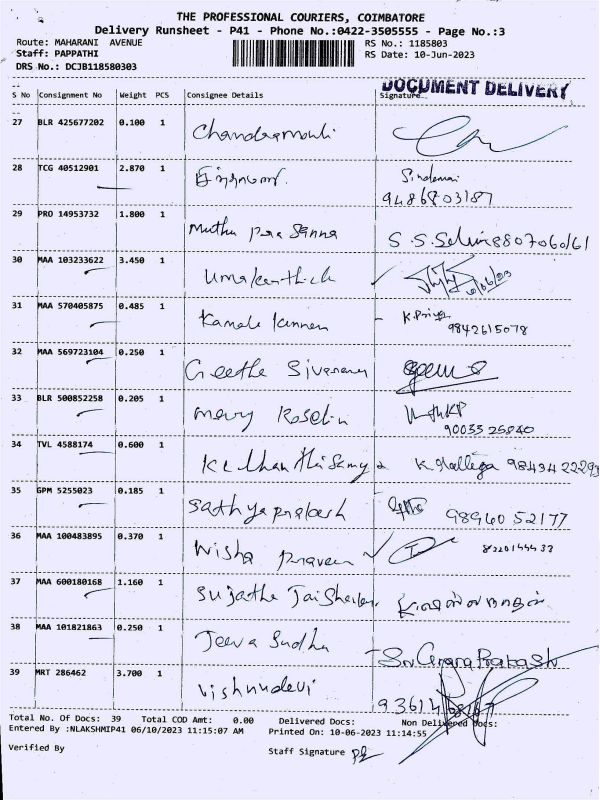 THE PROFESSIONAL COURIERS, COIMBATORE
Delivery Runsheet - P41 - Phone No.:0422-3505555 - Page No.:3
Route: MAHARANI AVENUE RS No.: 1185803
Staff: PAPPATHI RS Date: 10-Jun-2023
DRS No.: DCJB118580303
DOCUMENT DELIVERY
S No Consignment No Weight PCS Consignee Details Signature
27 BLR 425677202 0.100 1 Chandramouli
28 TCG 40512901 2.870 1
9486803187
29 PRO 14953732 1.800 1 Muthu Prasanna S.S.Selvi 8807060161
30 MAA 103233622 3.450 1 Uma Kanthick
31 MAA 570405875 0.485 1 Kamala Kannan K.Priya
9842615078
32 MAA 569723104 0.250 1 Geetha Sivaraman
33 BLR 500852258 0.205 1 Mary Roselin
90033 25840
34 TVL 4588174 0.600 1 K. Mallega
35 GPM 5255023 0.185 1 Sathyaprakash 98940 52177
36 MAA 100483895 0.370 1 Nisha Praveen
37 MAA 600180168 1.160 1 Sujatha Jai Shankar
38 MAA 101821863 0.250 1 Jeeva Sudha
39 MRT 286462 3.700 1 Vishnudevi
Total No. Of Docs: 39 Total COD Amt: 0.00 Delivered Docs: Non Delivered Docs:
Entered By :NLAKSHMIP41 06/10/2023 11:15:07 AM Printed On: 10-06-2023 11:14:55
Verified By Staff Signature